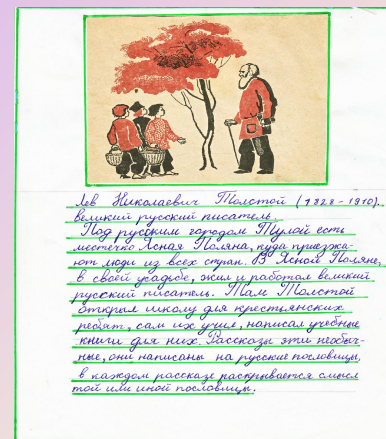 Лев Николаевич Толстой (1828-1910).
великий русский писатель.
Под русским городом Тулой есть
местечко Ясная Поляна, куда приезжа-
ют люди из всех стран. В Ясной Поляне,
в своей усадьбе, жил и работал великий
русский писатель. Там Толстой
открыл школу для крестьянских
ребят, сам их учил, написал учебные
книги для них. Рассказы эти необыч-
ные, они написаны на русские пословицы,
в каждом рассказе раскрывается смысл
той или иной пословицы.